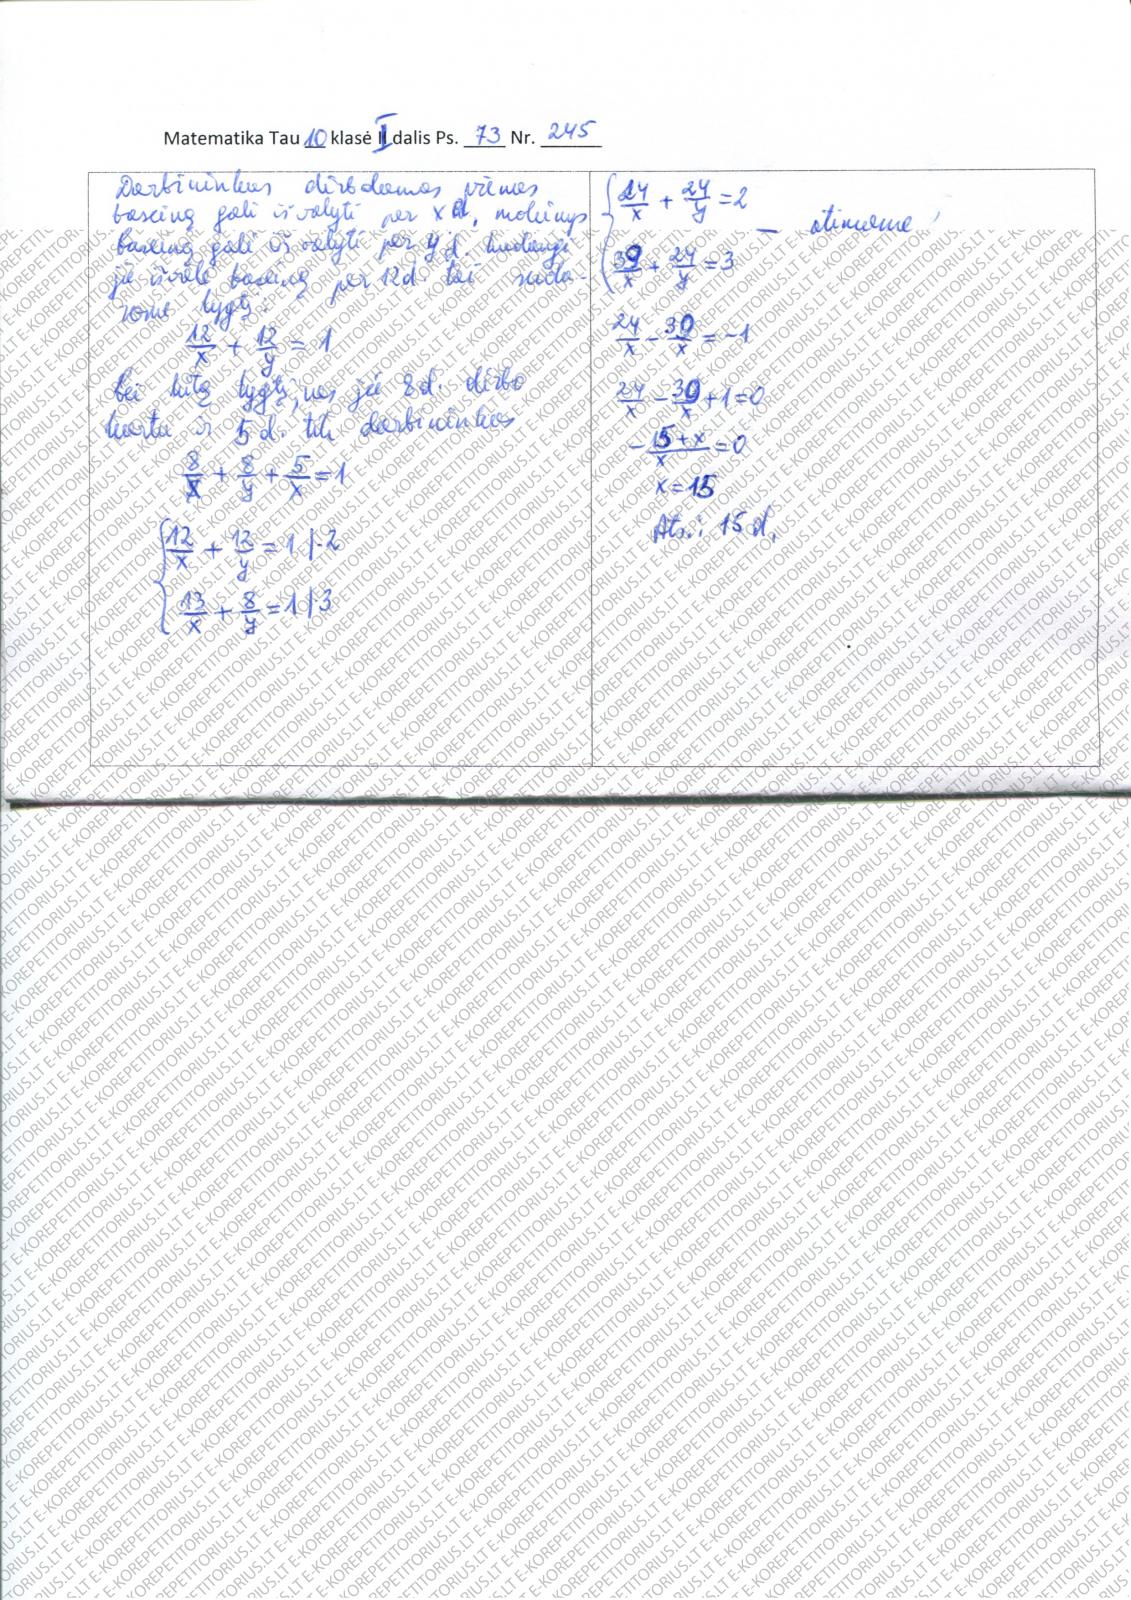 Matematika Tau 10 klasė I dalis Ps. 73 Nr. 245
Darbininkas dirbdamas vienas
baseiną gali išvalyti per x d, mokinys
baseiną gali išvalyti per y d. kadangi
jie išvalė baseiną per 12d. tai suda-
rome lygtį:
12/x + 12/y = 1
bei kitą lygtį, nes jie 8d. dirbo
kartu ir 5d. tik darbininkas
8/x + 8/y + 5/x = 1
12/x + 12/y = 1 |·2
13/x + 8/y = 1 |·3
24/x + 24/y = 2
— atimame
39/x + 24/y = 3
24/x - 39/x = -1
24/x - 39/x + 1 = 0
-15+x/x = 0
x = 15
Ats.: 15 d.
E-KOREPETITORIUS.LT